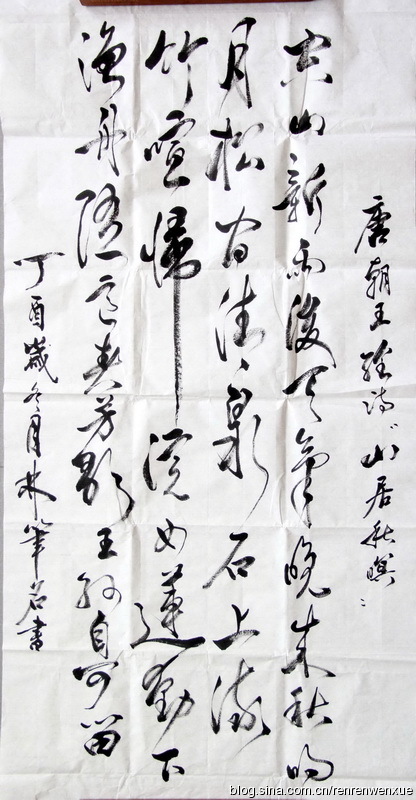 唐朝王维诗"山居秋暝"
空山新雨後天氣晚來秋明
月松间清泉石上流
竹喧歸浣女蓮動下
渔舟随意春芳歇王孙自可留
丁酉歲冬月林筆書
blog.sina.com.cn/renrenwenxue